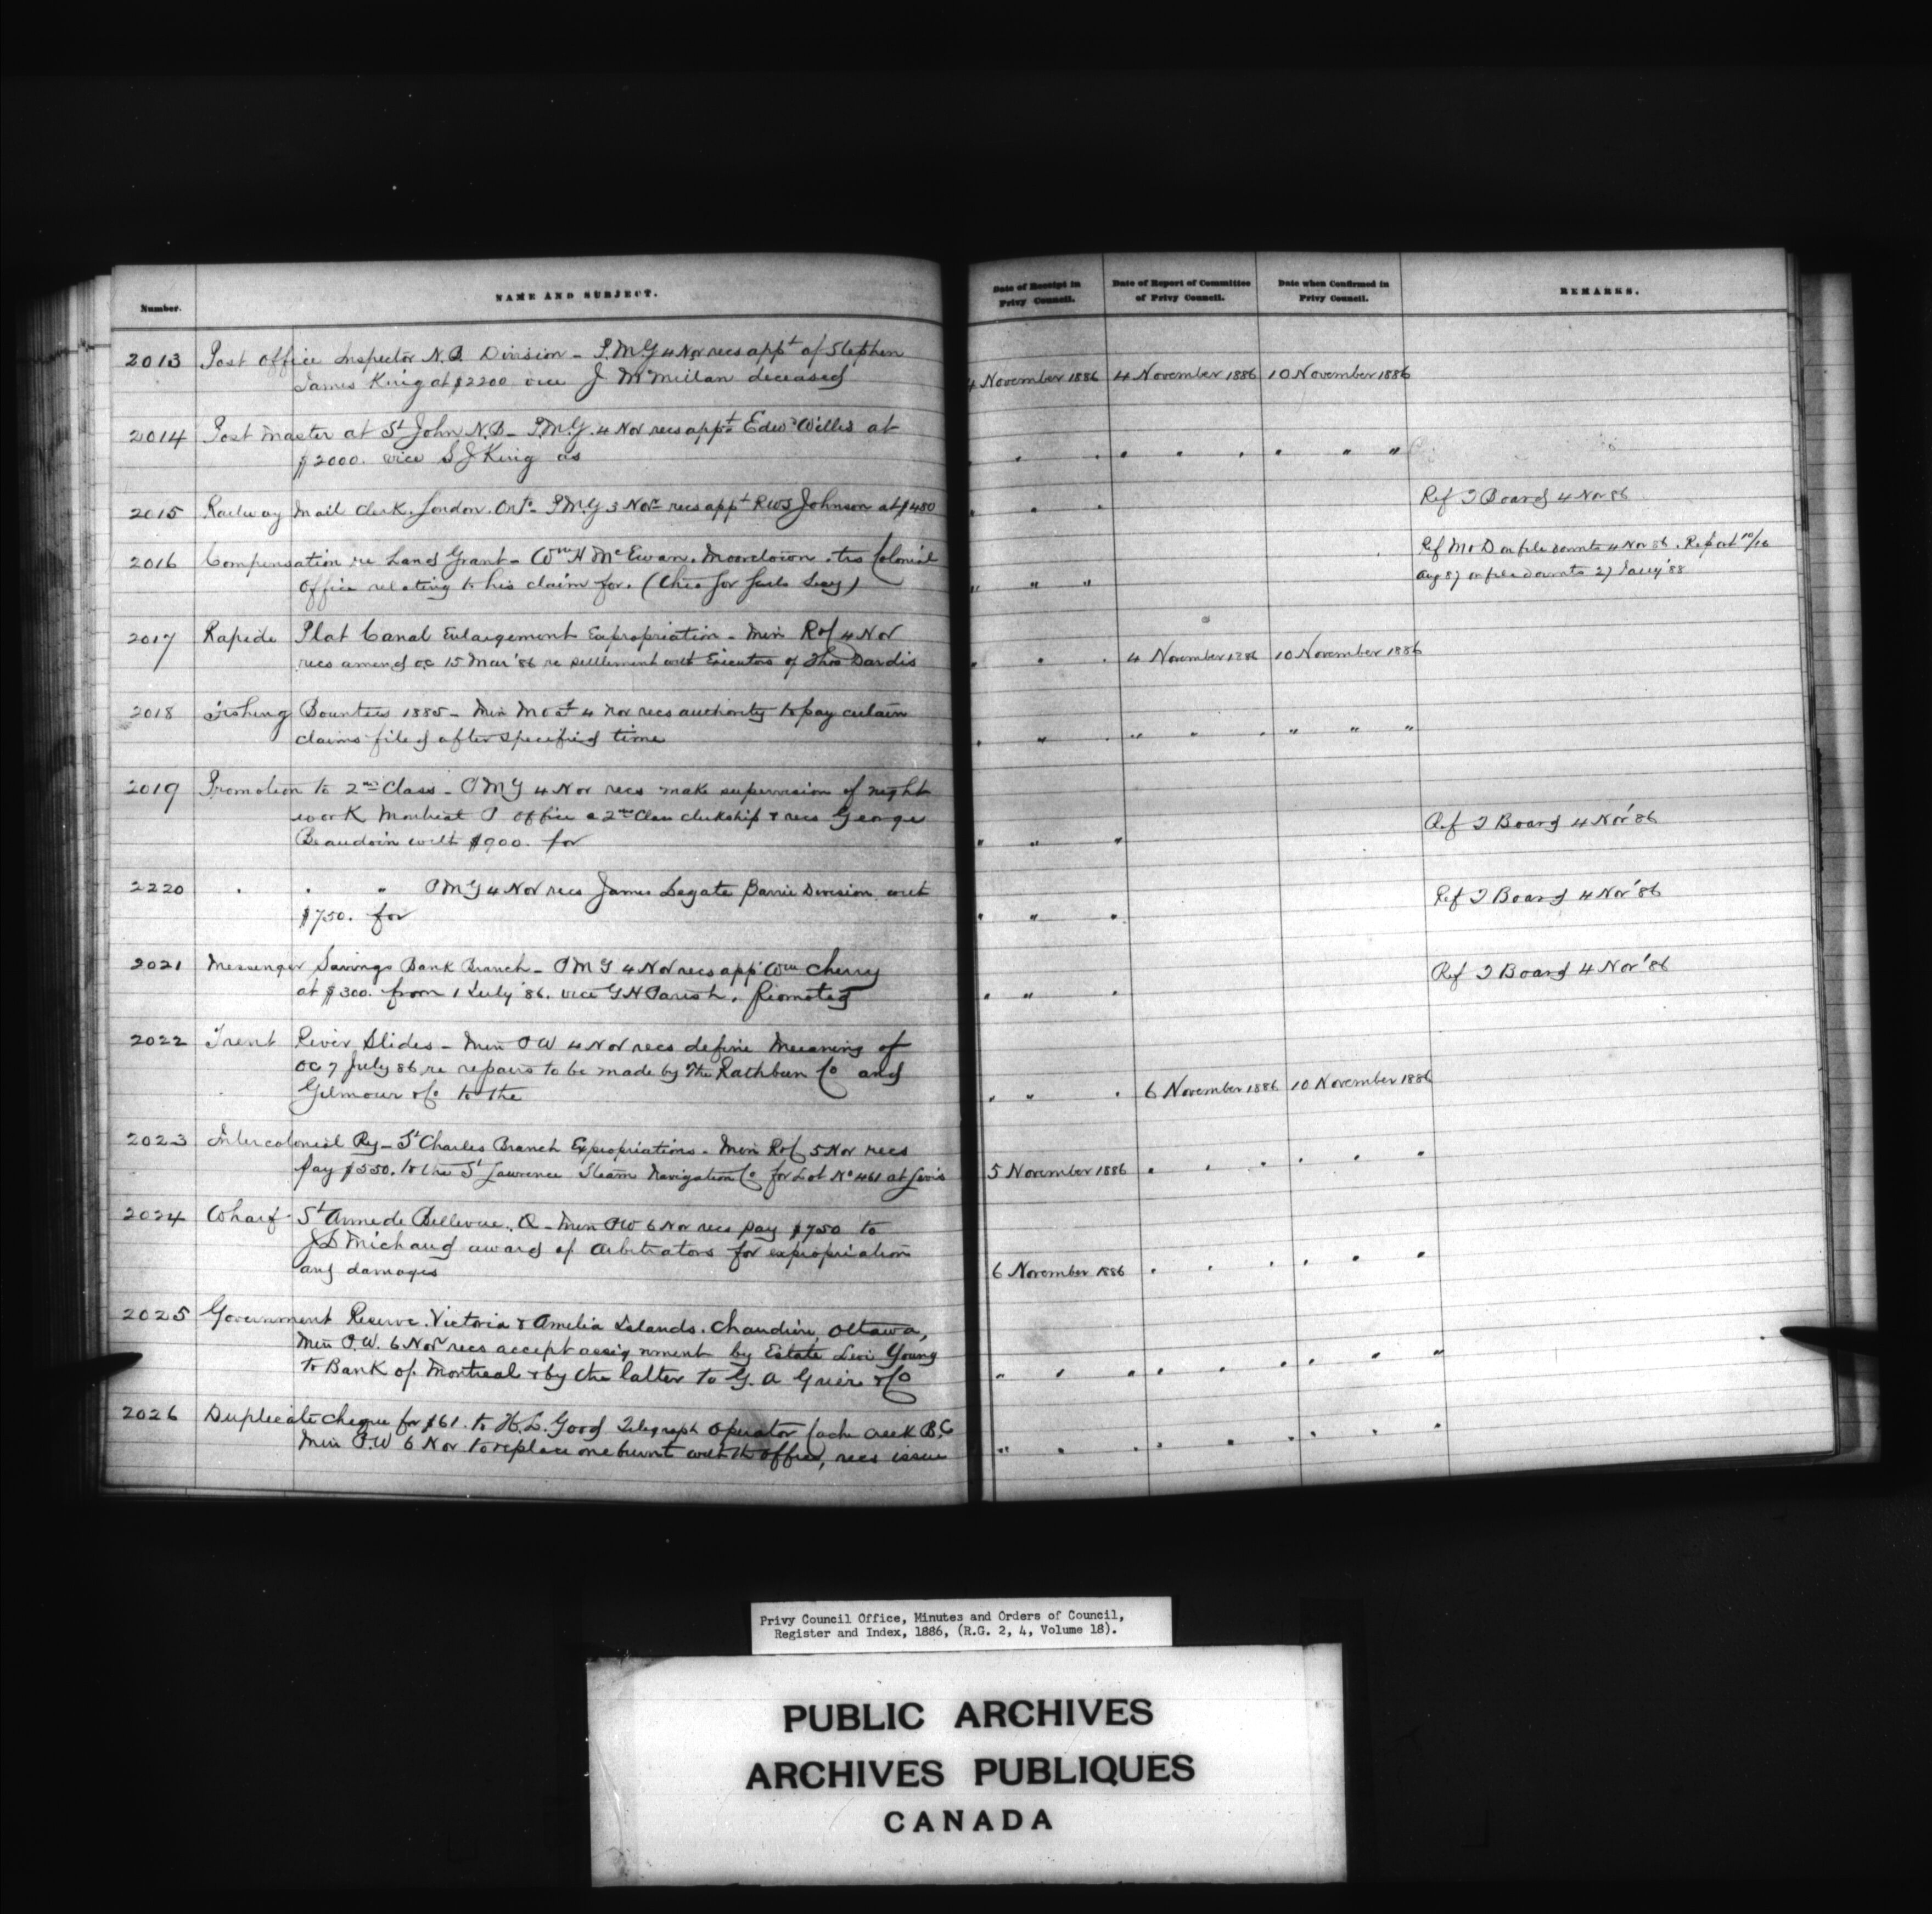 Number.
NAME AND SUBJECT.
Date of Receipt in Privy Council.
Date of Report of Committee of Privy Council.
Date when Confirmed in Privy Council.
REMARKS.
2013 Post Office Inspector N.B. Division - P.M.G 4 Nov recs appt of Stephen
James King at $2200 vice J McMillan deceased
4 November 1886 4 November 1886 10 November 1886
2014 Post Master at St John N.B - P.M.G. 4 Nov recs appt Edwd Willis at
$2000. vice S J King as
" " " " " " " " "
2015 Railway Mail Clerk. London. Ont. - P.M.G 3 Nov recs appt RWS Johnson at $480
" " "
Ref T Board 4 Nov 86
2016 Compensation re Land Grant - Wm H McEwan. Moordown. to Colonial
Office relating to his claim for. (Thro Gov Genls Secy)
" " "
Ref M I & D on file downts 4 Nov 86. Report 10/16
Aug 87 on file downts 27 Jany '88
2017 Rapide Plat Canal Enlargement Expropriation - Min R&C 4 Nov
recs amend OC 15 Mar '86 re settlement with Executors of Thos Dardis
" " " 4 November 1886 10 November 1886
2018 Fishing Bounties 1885 - Min M & F 4 Nov recs authority to pay certain
claims filed after specified time
" " " " " " " " "
2019 Promotion to 2nd Class - P M G 4 Nov recs make supervision of night
work Montreal P Office a 2nd Class clerkship & recs George
Beaudoin with $900. for
" " "
Ref T Board 4 Nov '86
2220 " " " P M G 4 Nov recs James Legate Barrie Division with
$750. for
" " "
Ref T Board 4 Nov '86
2021 Messenger Savings Bank Branch - P M G 4 Nov recs appt Wm Cherry
at $300. from 1 July '86. vice G H Parish. promoted
" " "
Ref T Board 4 Nov '86
2022 Trent River Slides - Min P W 4 Nov recs define meaning of
OC 7 July 86 re repairs to be made by The Rathbun Co and
Gilmour & Co to the
" " " 6 November 1886 10 November 1886
2023 Intercolonial Ry - St Charles Branch Expropriations - Min R&C 5 Nov recs
pay $550. to the St Lawrence Steam Navigation Co for Lot No 461 at Levis
5 November 1886 " " " " " "
2024 Wharf St Anne de Bellevue, Q - Min P W 6 Nov recs pay $750 to
J D Michaud award of Arbitrators for expropriation
and damages
6 November 1886 " " " " " "
2025 Government Reserve. Victoria & Amelia Islands. Chaudiere, Ottawa,
Min P.W. 6 Nov recs accept assignment by Estate Levi Young
to Bank of Montreal & by the latter to G. A Grier & Co
" " " " " " " " "
2026 Duplicate cheque for $61. to H. L. Good Telegraph Operator Cache Creek B.C
Min P.W 6 Nov to replace one burnt with the office, recs issue
" " " " " " " " "
Privy Council Office, Minutes and Orders of Council,
Register and Index, 1886, (R.G. 2, 4, Volume 18).
PUBLIC ARCHIVES
ARCHIVES PUBLIQUES
CANADA